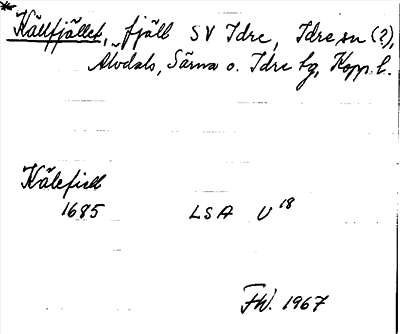 * Källfjället, fjäll SV Idre, Idre sn (?),
Älvdals, Särna o. Idre tg, Kopp. l.
Kälefiell
1685 LSA U 18
FW. 1967